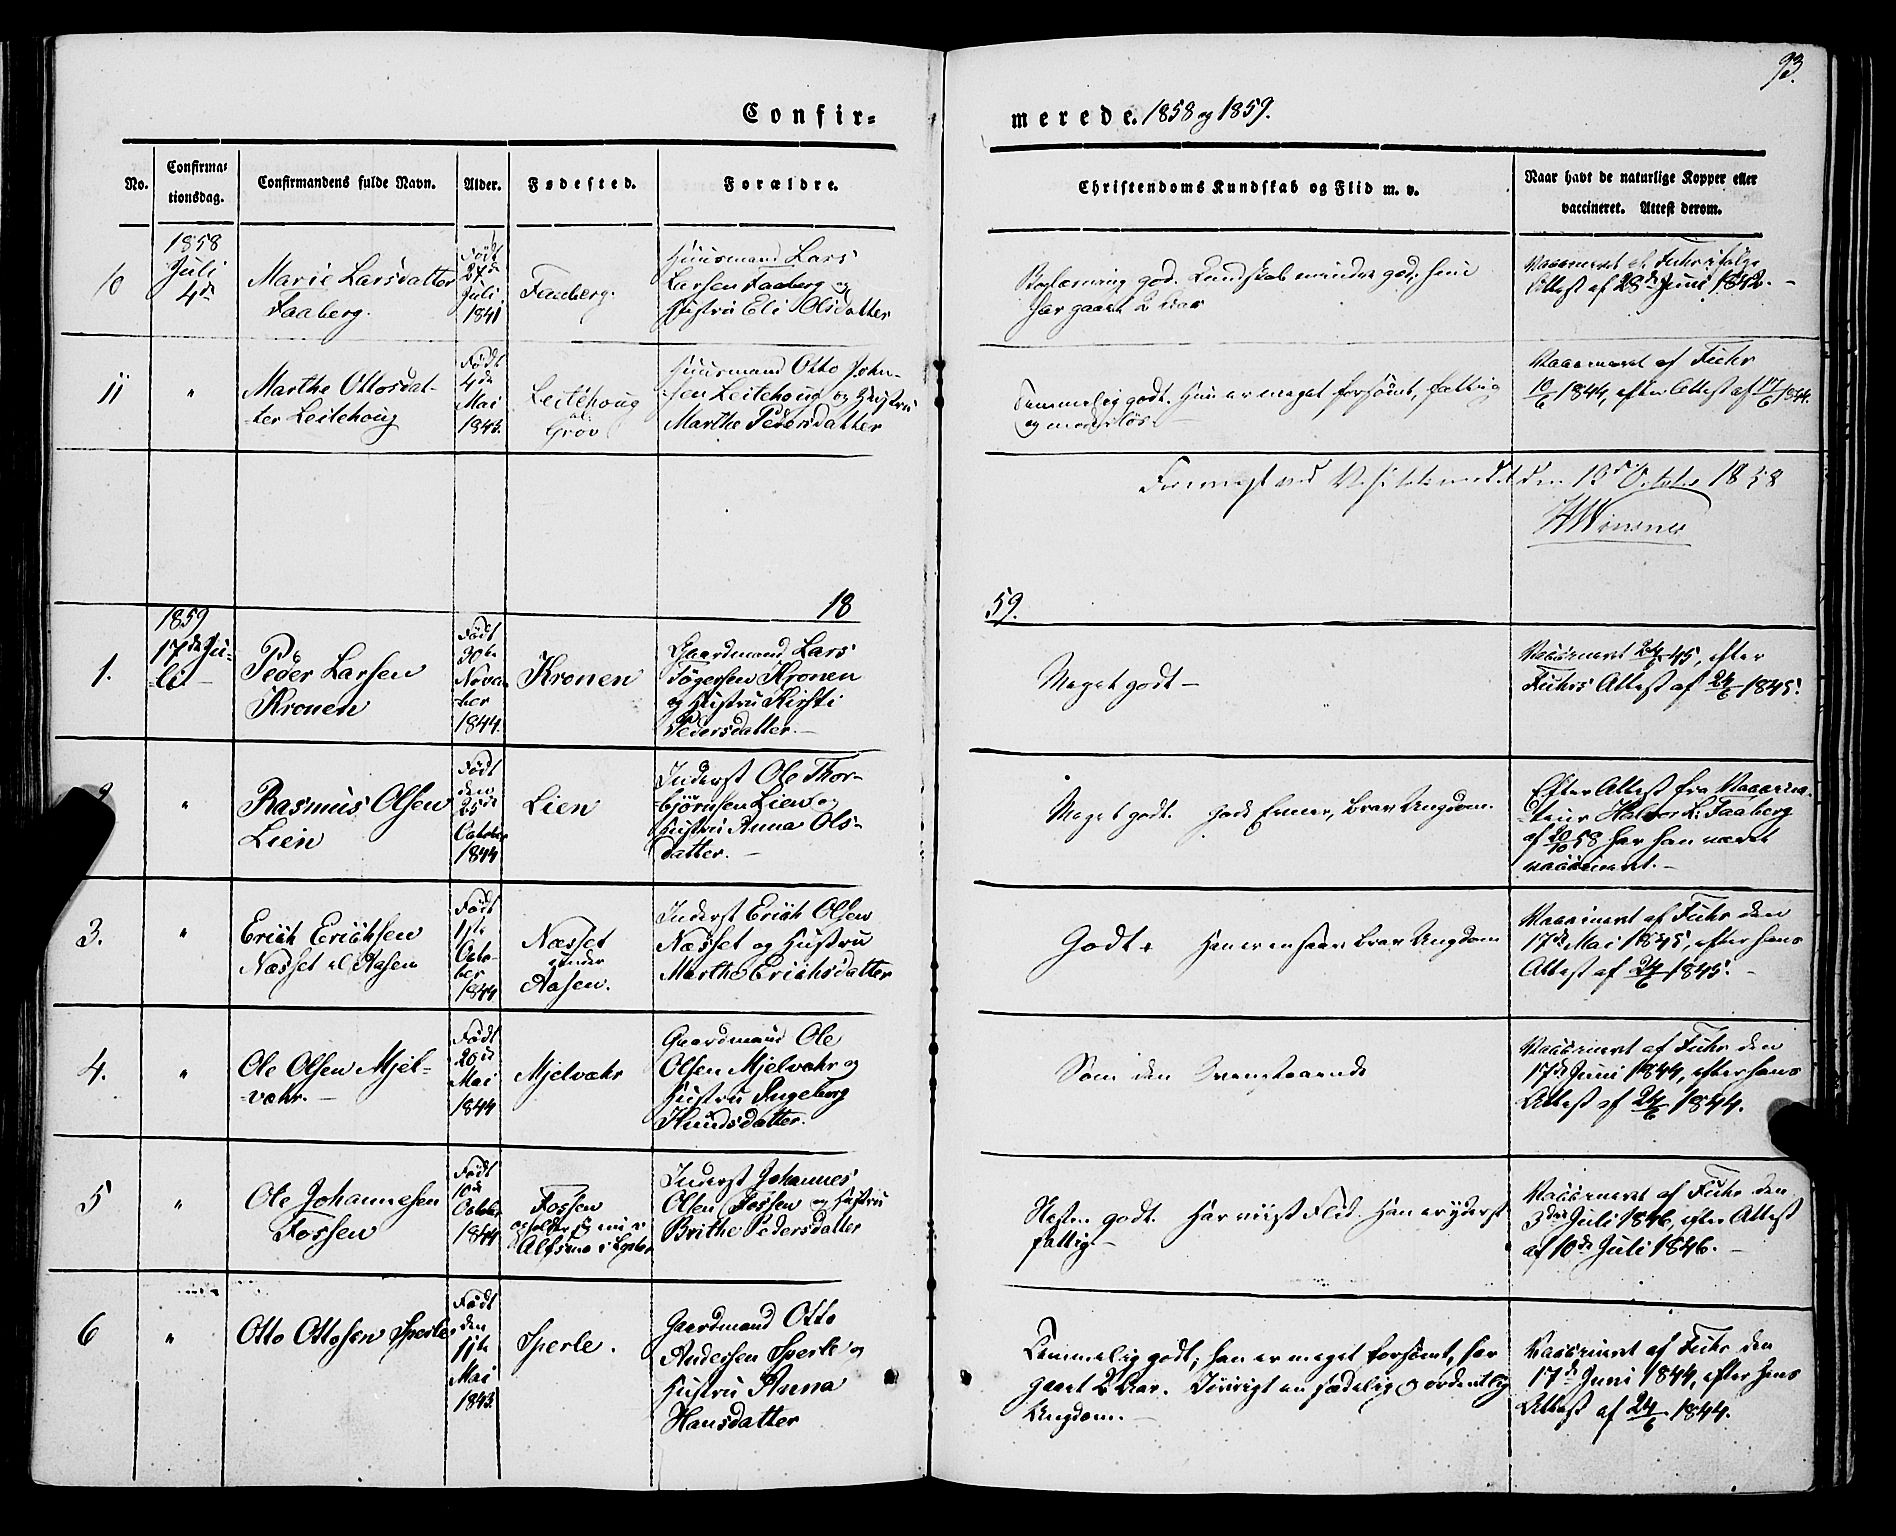 93.
Confir-
merede. 1858 og 1859.
No.
Confirma-
tionsdag.
Confirmandens fulde Navn.
Alder.
Fødested.
Forældre.
Christendoms Kundskab og Flid m. v.
Naar havt de naturlige Kopper eller
vaccineret. Attest derom.
10
1858
Juli
4de
Marie Larsdatter
Faaberg.
Født
27de
Juli
1841
Faaberg.
Huusmand Lars
Larsen Faaberg og
Hustru Eli Olsdatter
god. Kundskab mindre god; hun
har gaaet 2 Aar
Vaccineret af Fuhr ifølge
Attest af 28de Juni 1842. -
11
"
Marthe Ottosdat-
ter Leitehoug
Født
4de
Mai
1843.
Leitehoug
al
Grov
Huusmand Otto John-
sen Leitehoug og Hustru
Marthe Pedersdatter
Temmelig godt. Hun er meget forsömt, fattig
og moderlös. -
Vaccineret af Fuhr
10/6 1844, efter Attest af 17/6 1844.
Foreviist ved Visitatsmødet den 13de October 1858
1859
1.
1859
17de Ju-
li -
Peder Larsen
Kronen
Født
30te
Novem-
ber
1844.
Kronen
Gaardmand Lars
Tøgersen Kronen
og Hustru Kirsti
Pedersdatter. -
Meget godt -
Vaccineret 24/6 45, efter
Fuhrs Attest af 24/6 1845.
2
"
Rasmus Olsen
Lien
Født
den
25de
October
1844
Lien
Inderst Ole Thor-
björnsen Lien og
Hustru Anna Ols-
datter. -
Meget godt. Gode Evner, brav Ungdom.
Efter Attest fra Vaccina-
teur Halvor L. Faaberg
af 20/10 58 har han været
vaccineret. -
3.
"
Erich Erichsen
Næsset al Aasen
Født
1ste
Octo-
ber
1844
Næsset
under
Aasen.
Inderst Erich Olsen
Næsset og Hustru
Marthe Erichsdatter
Godt. Han er en saare brav Ungdom
Vaccineret af Fuhr den
17de Mai 1845, efter hans
Attest af 24/6 1845. -
4.
"
Ole Olsen Mjel-
-væhr. -
Født
20de
Mai
1844
Mjelvæhr
Gaardmand Ole
Olsen Mjelvæhr og
Hustru Ingeborg
Knudsdatter.
Som den Ovenstaaende
Vaccineret af Fuhr den
17de Juni 1844, efter hans
Attest af 24/6 1844.
5
"
Ole Johannesen
Fossen
Født
10de
October
1844
Fossen
Inderst Johannes
Olsen Fossen og Hustru
Brithe Pedersdatter
Næsten godt. Har viist Flid. Han er yderst
fattig. -
Vaccineret af Fuhr den
3die Juli 1846, efter Attest
af 10de Juli 1846. -
6
"
Otto Ottosen Sperle
Født
den
11te
Mai
1843.
Sperle.
Gaardmand Otto
Andersen Sperle og
Hustru Anna
Hansdatter
Temmelig godt; han er meget forsömt, har
gaaet 2 Aar. Iøvrigt en sædelig og ordentlig
Ungdom. -
Vaccineret af Fuhr den
17de Juni 1844, efter hans
Attest af 24/6 1844.